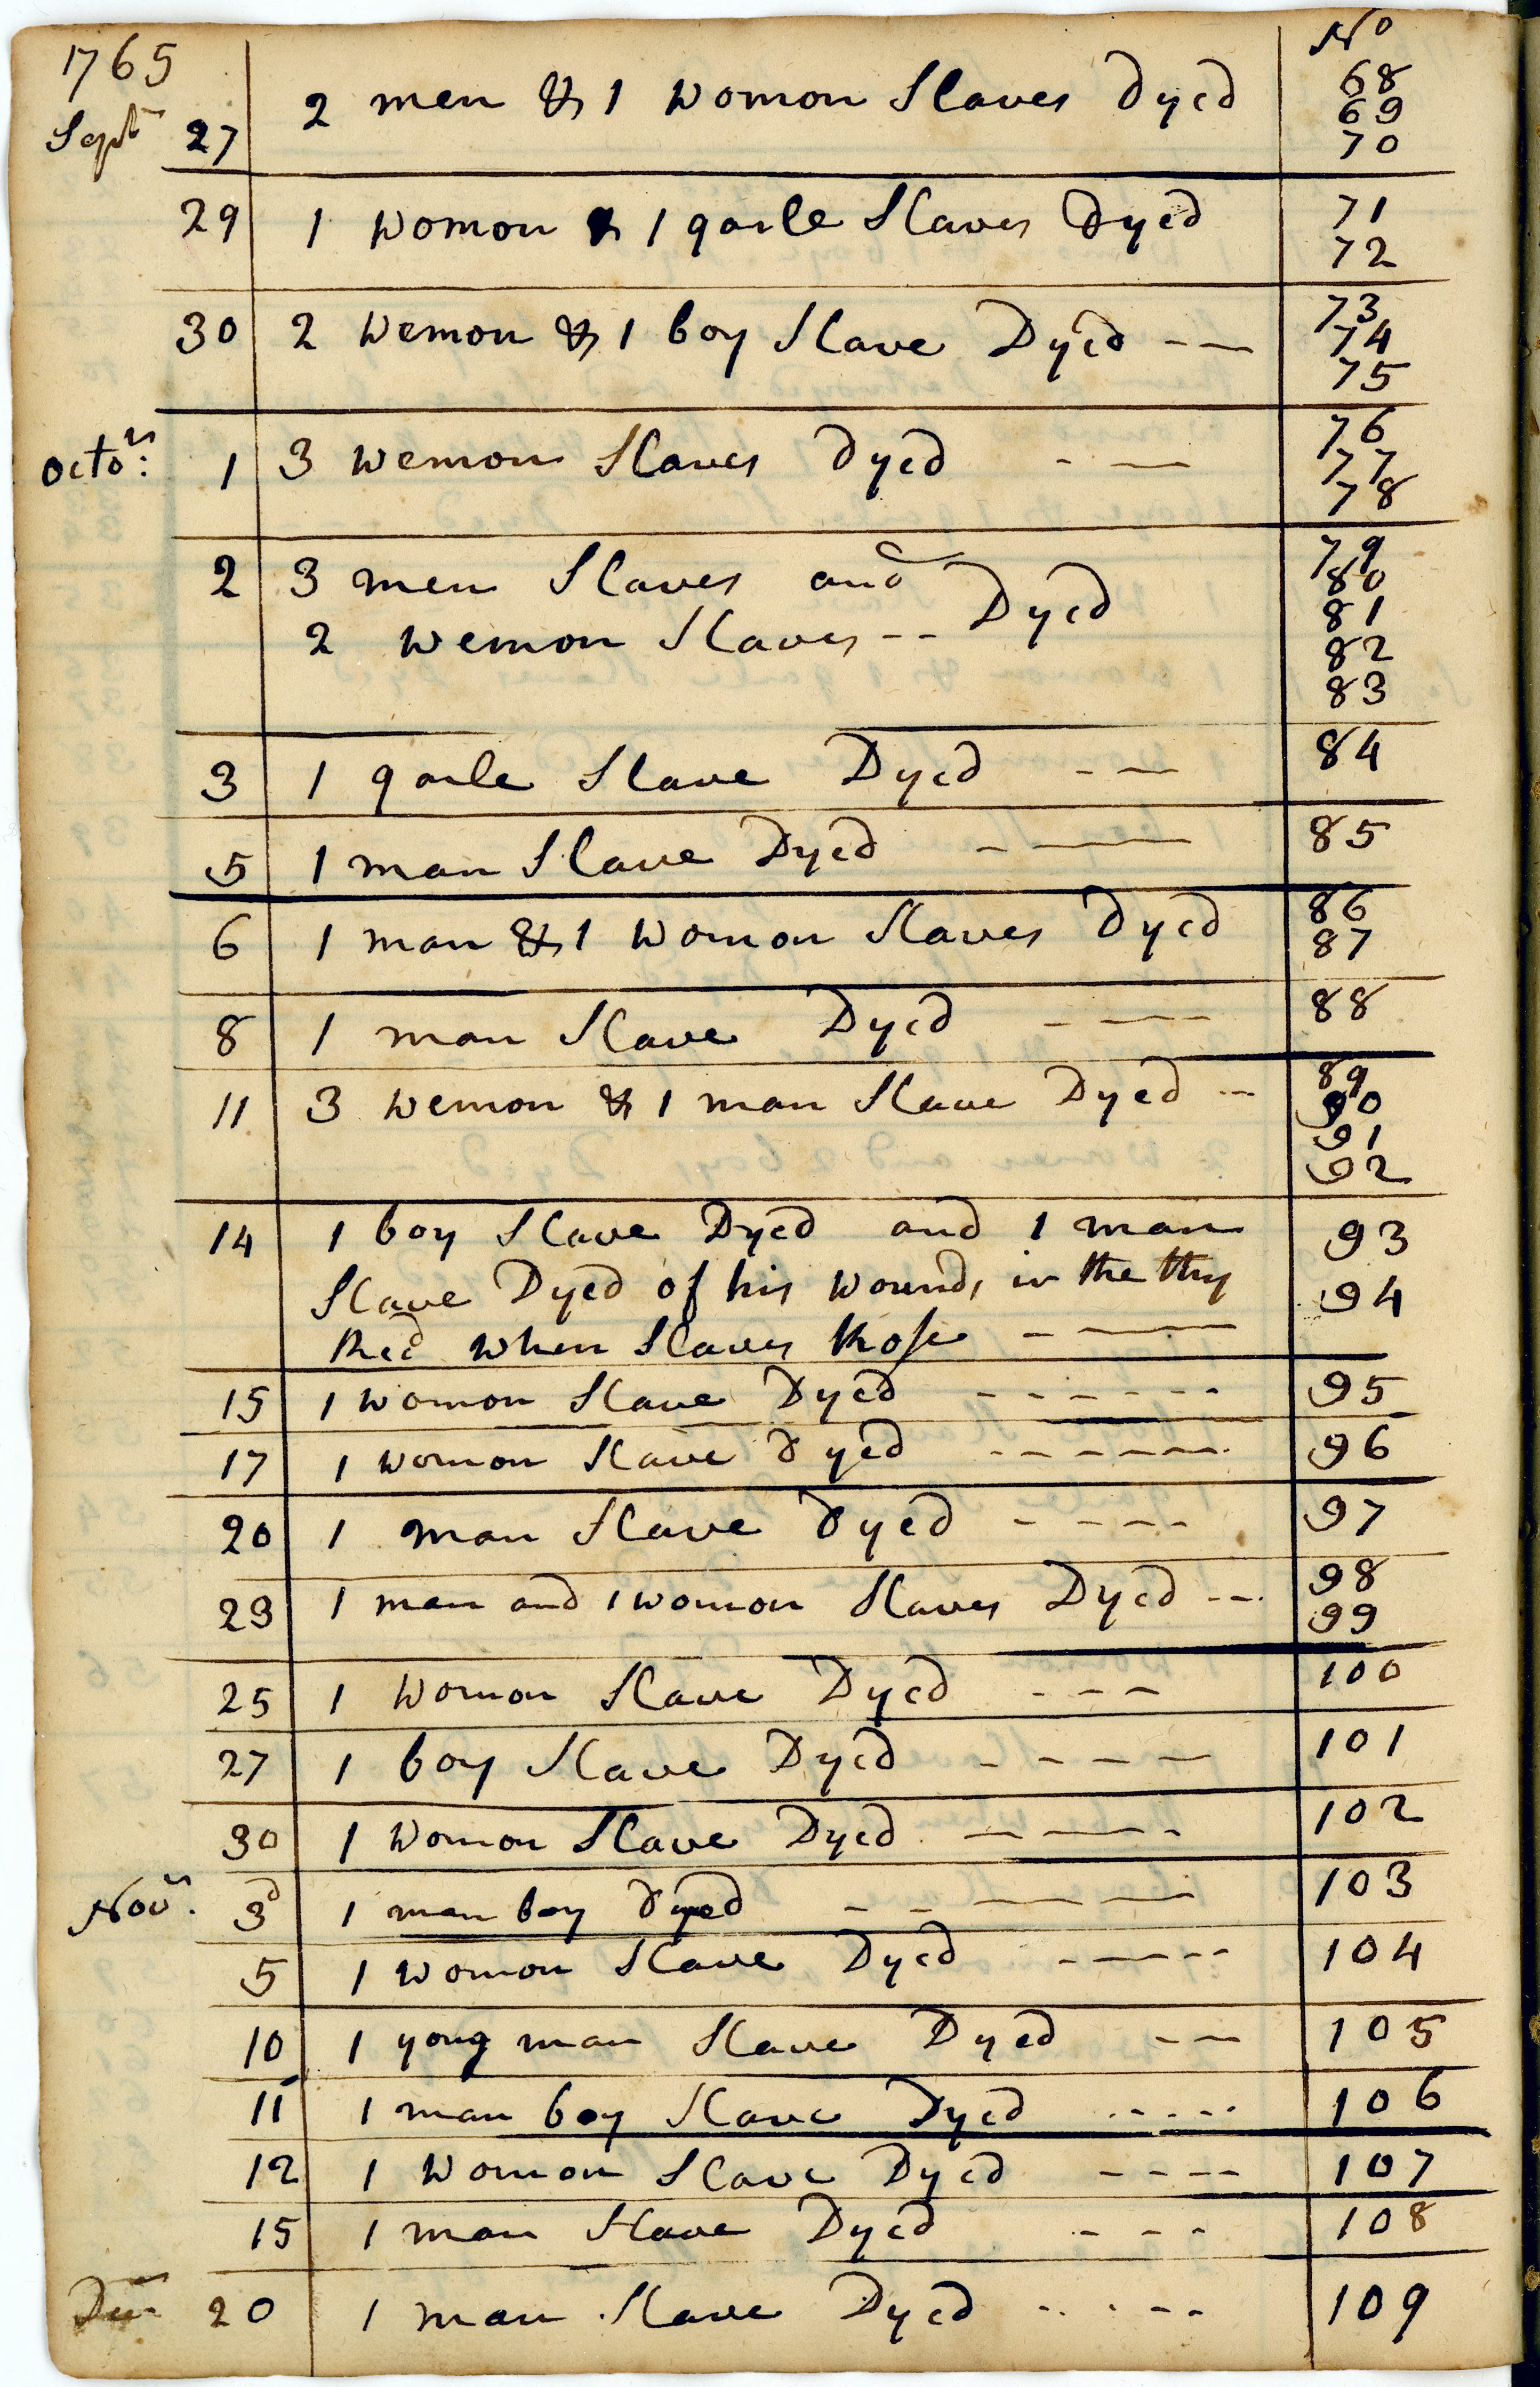 1765
No
Sept 27 2 men & 1 womon Slaves Dyed 68
69
70
29 1 womon & 1 garle Slaves Dyed 71
72
30 2 wemon & 1 boy Slave Dyed - — 73
74
75
Octor: 1 3 wemon Slaves Dyed - — 76
77
78
2 3 men Slaves and 79
80
2 wemon Slaves -- Dyed 81
82
83
3 1 garle Slave Dyed - — 84
5 1 man Slave Dyed - — 85
6 1 man & 1 womon Slaves Dyed 86
87
8 1 man Slave Dyed - — 88
11 3 wemon & 1 man Slave Dyed -- 89
90
91
92
14 1 boy Slave Dyed and 1 man 93
Slave Dyed of his wounds in the thy 94
Recd when Slaves Rose - —
15 1 womon Slave Dyed ------ 95
17 1 womon Slave Dyed ------ 96
20 1 man Slave Dyed ---- 97
23 1 man and 1 womon Slaves Dyed -- 98
99
25 1 womon Slave Dyed --- 100
27 1 boy Slave Dyed ---- 101
30 1 womon Slave Dyed ---- 102
Novr. 3d 1 man boy Dyed ---- 103
5 1 womon Slave Dyed ----- 104
10 1 yong man Slave Dyed -- 105
11 1 man boy Slave Dyed ..... 106
12 1 womon Slave Dyed ---- 107
15 1 man Slave Dyed --- 108
20 1 man Slave Dyed ..... 109